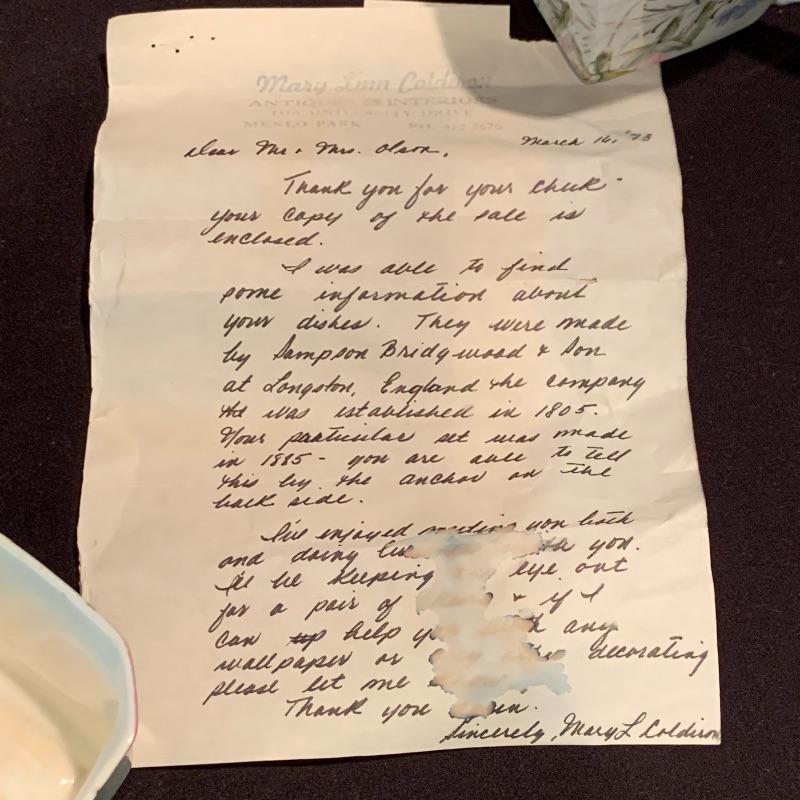 Mary Linn Coldiron
ANTIQUES INTERIORS
UNIVERSITY DRIVE
MENLO PARK PH.
Dear Mr. & Mrs. Olson, March 16, '73
Thank you for your check
your copy of the sale is
enclosed.
I was able to find
some information about
your dishes. They were made
by Sampson Bridgwood & Son
at Longston, England the company
was established in 1805.
Your particular set was made
in 1885 - you are able to tell
this by the anchor on the
back side.
I've enjoyed meeting you both
and doing you.
I'll be keeping eye out
for a pair of & if I
can help any
wallpaper or decorating
please let me
Thank you
Sincerely, Mary L Coldiron